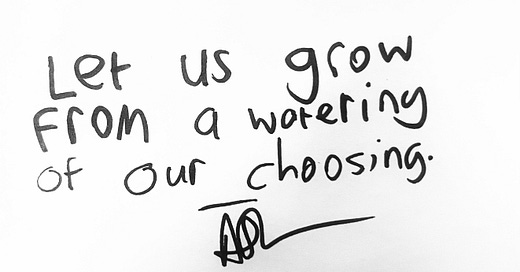 Let us grow
from a watering
of our choosing.